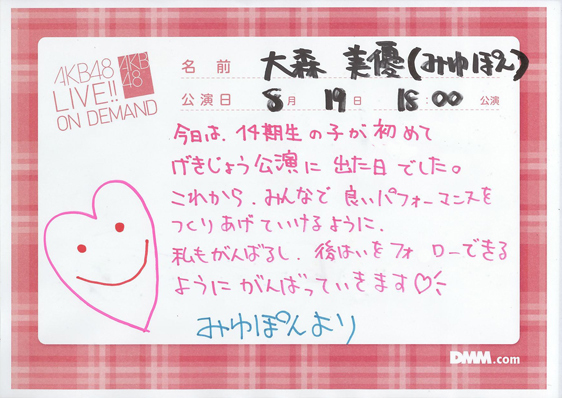 AKB48
LIVE!!
ON DEMAND
AKB
48
名前 大森美優(みゆぽん)
公演日 8月19日 18:00 公演
今日は、14期生の子が初めて
げきじょう公演に出た日でした。
これから、みんなで良いパフォーマンスを
つくりあげていけるように、
私もがんばるし、後はいをフォローできる
ようにがんばっていきます♡
みゆぽんより
DMM.com